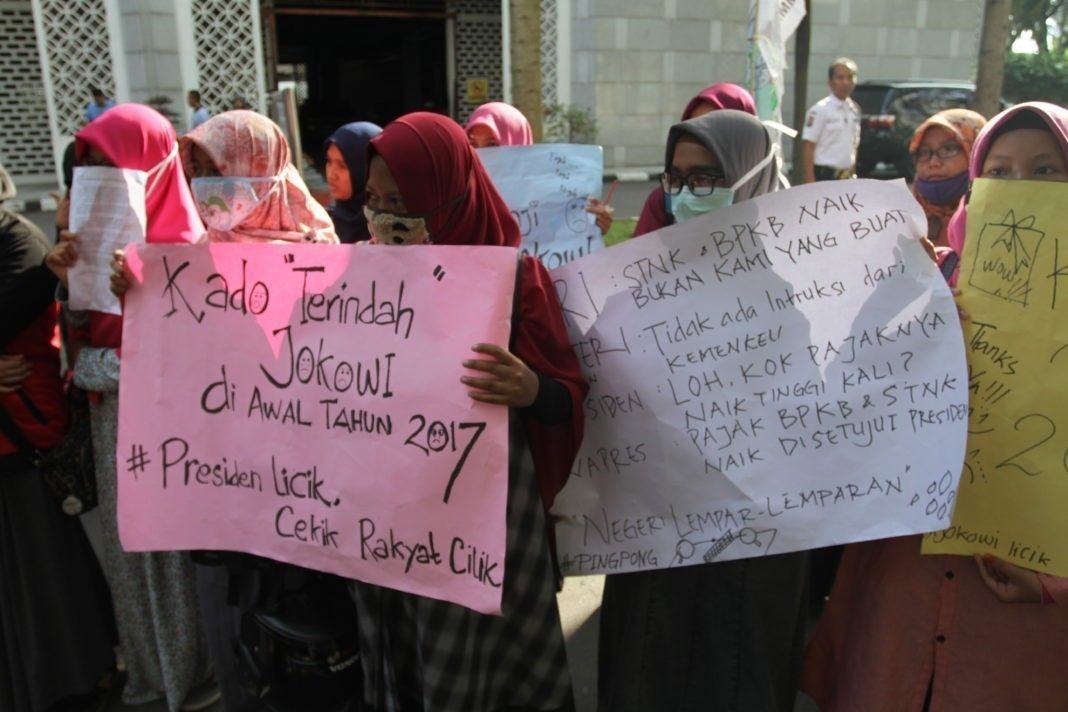 Kado "Terindah"
JOKOWI
di AWAL TAHUN 2017
# Presiden licik,
Cekik Rakyat Cilik
RI : STNK & BPKB NAIK
BUKAN KAMI YANG BUAT
TERI : Tidak ada Intruksi dari
KEMENKEU
SIDEN : LOH, KOK PAJAKNYA
NAIK TINGGI KALI?
WAPRES : PAJAK BPKB & STNK
NAIK DISETUJUI PRESIDEN
"NEGERI LEMPAR-LEMPARAN"
#PINGPONG
WOW!
Thanks
2
Jokowi licik
Jokowi
HONDA